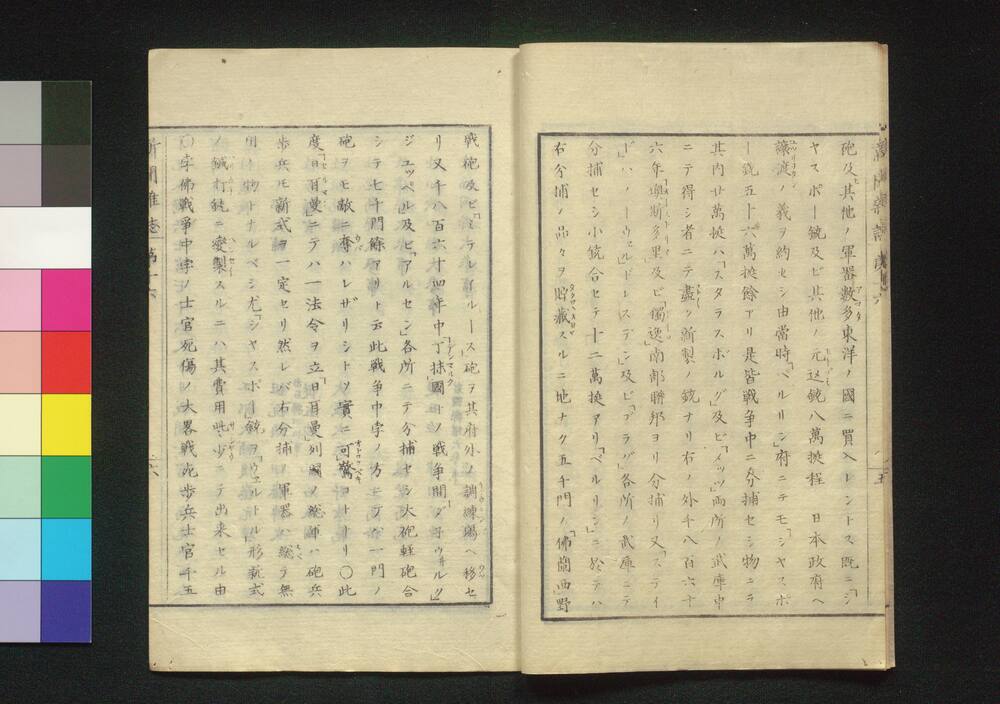 砲及ビ其他ノ軍器數多東洋ノ國ニ買入レントス既ニ「シ
ヤスポー銃及ビ其他ノ元込銃八萬挺程 日本政府ヘ
讓渡ノ義ヲ約セシ由當時「ベルリン」府ニテモ「シヤスポ
ー銃五十六萬挺餘アリ是皆戰爭中ニ分捕セシ物ニテ
其内廿萬挺ハ「スタラスボルグ」及ビ「メッツ」両所ノ武庫中
ニテ得シ者ニテ盡ク新製ノ銃ナリ右ノ外千八百六十
六年墺斯多里及ビ「獨逸」南部聯邦ヨリ分捕リ又「ステイ
ド」ハノーウェル」ドレスデン」及ビ「プラグ」各所ノ武庫ニテ
分捕セシ小銃合セテ十二萬挺アリ「ベルリン」ニ於テハ
右分捕ノ品々ヲ貯藏スルニ地ナク五千門ノ「佛蘭西野
五
戰砲及ビ「ミラレイルース砲ヲ其府外ノ調練場ヘ移セ
リ又千八百六十四年中丁抹國トノ戰爭
ジュッペル」及ビ「アルセン」各所ニテ分捕セシ大砲軽砲合
シテ七千門餘アリト云此戰爭中孛ノ方ニテハ一門ノ
砲ヲモ敵ニ奪ハレザリシトゾ實ニ可驚コトナリ 〇此
度日耳曼ニテハ一法令ヲ立日耳曼列國ノ総師ハ砲兵
歩兵凡新式ヲ一定セリ然レバ右分捕ノ軍器ハ総テ無
用ノ物トナルベシ尤「シヤスポー銃ヲ「ウエルトル」形新式
ノ鍼打銃ニ變製スルニハ其費用些少ニテ出来セル由
〇孛佛戰爭中孛ノ士官死傷ノ大畧戰死歩兵士官千五
新聞雜誌 第十六
六